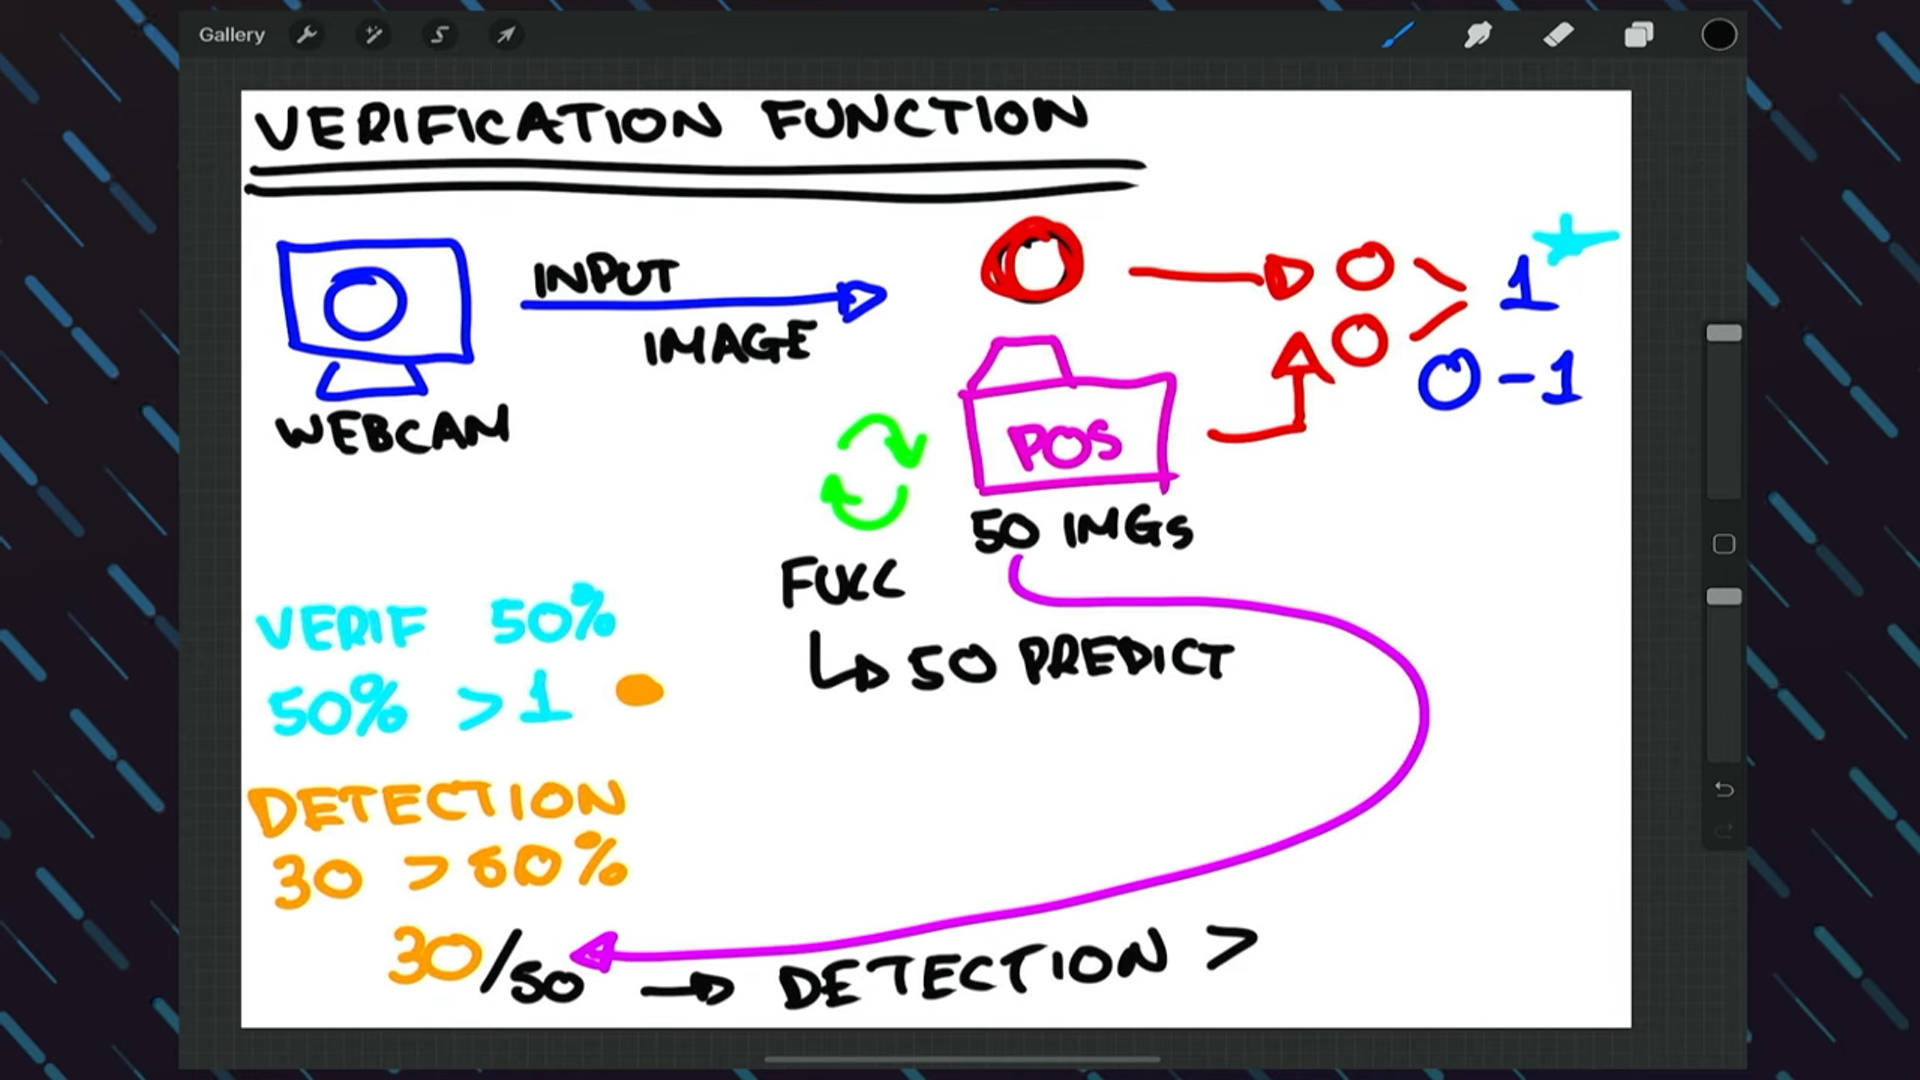 Gallery
VERIFICATION FUNCTION
INPUT
IMAGE
WEBCAM
1
0-1
POS
50 IMGS
FULL
50 PREDICT
VERIF 50%
50% >1
DETECTION
30 > 80%
30/50 → DETECTION >